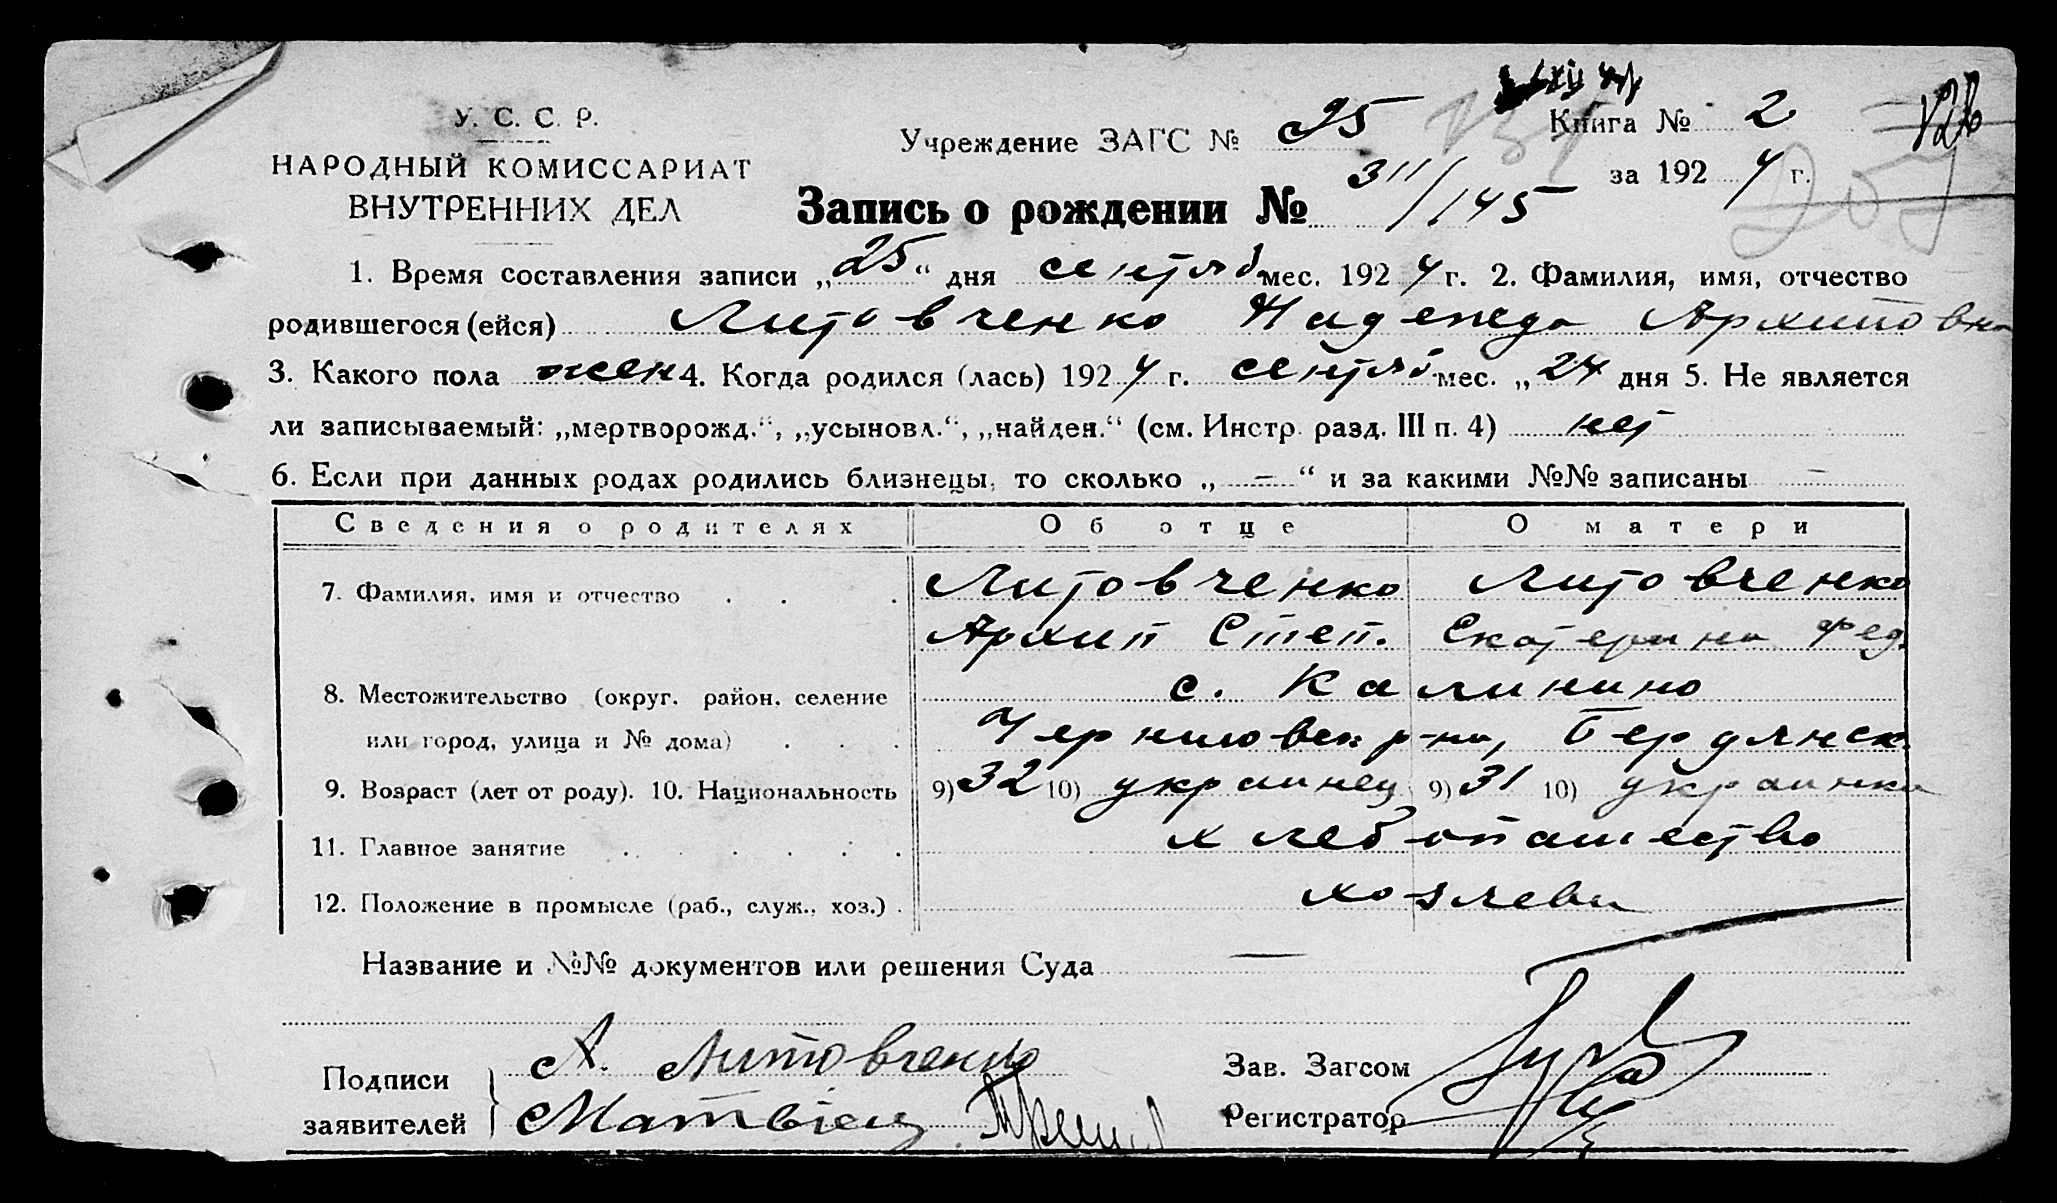 У. С. С. Р.
НАРОДНЫЙ КОМИССАРИАТ
ВНУТРЕННИХ ДЕЛ
Учреждение ЗАГС № 25
Книга № 2
126
за 1924 г.
Запись о рождении № 311/145
1. Время составления записи „25“ дня сентяб мес. 1924 г. 2. Фамилия, имя, отчество
родившегося (ейся) Литовченко Надежда Архиповна
3. Какого пола жен 4. Когда родился (лась) 1924 г. сентяб мес. „24 дня 5. Не является
ли записываемый: „мертворожд.“, „усыновл.“, „найден.“ (см. Инстр. разд. III п. 4) нет
6. Если при данных родах родились близнецы, то сколько „ — “ и за какими №№ записаны —
Сведения о родителях Об отце О матери
7. Фамилия, имя и отчество Литовченко Литовченко
Архип Степ. Екатерина Фед.
8. Местожительство (округ, район, селение с. Калинино
или город, улица и № дома) р-на, Бердянск.
9. Возраст (лет от роду). 10. Национальность 9) 32 10) украинец 9) 31 10) украинка
11. Главное занятие хлебопашество
12. Положение в промысле (раб., служ., хоз.) хозяева
Название и №№ документов или решения Суда —
Подписи А. Литовченко Зав. Загсом
заявителей Регистратор